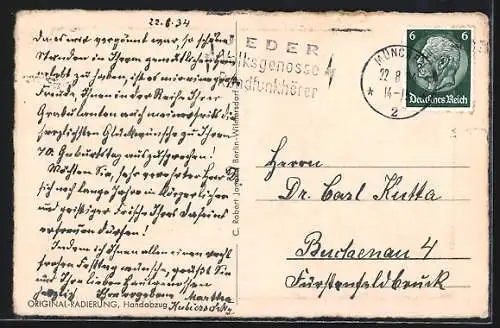 22.8.34
Da es mir vergönnt war, so schöne
Stunden in Ihrem gemütlichen Heim
erlebt zu haben, ist es mir eine
Freude, Ihnen in der Reihe Ihrer
Gratulanten auch meinerseits die
herzlichsten Glückwünsche zu Ihrem
70. Geburtstag auszusprechen!
Möchten Sie, sehr geehrter Herr
sich noch lange Jahre in körperlicher
und geistiger Frische Ihres Daseins
erfreuen dürfen!
Indem ich Ihnen allen einen recht
frohen Festtag wünsche, grüßt Sie
und Ihre lieben
herzlich Ihre ergebene Martha
ORIGINAL-RADIERUNG, Handabzug
C. Robert Berlin-Wilmersdorf
EDER
Volksgenosse
Rundfunkhörer
MÜNCHEN
22.8
14-1
2
6 6
Deutsches Reich
Herrn
Dr. Carl Kutta
Buchenau 4
Fürstenfeldbruck